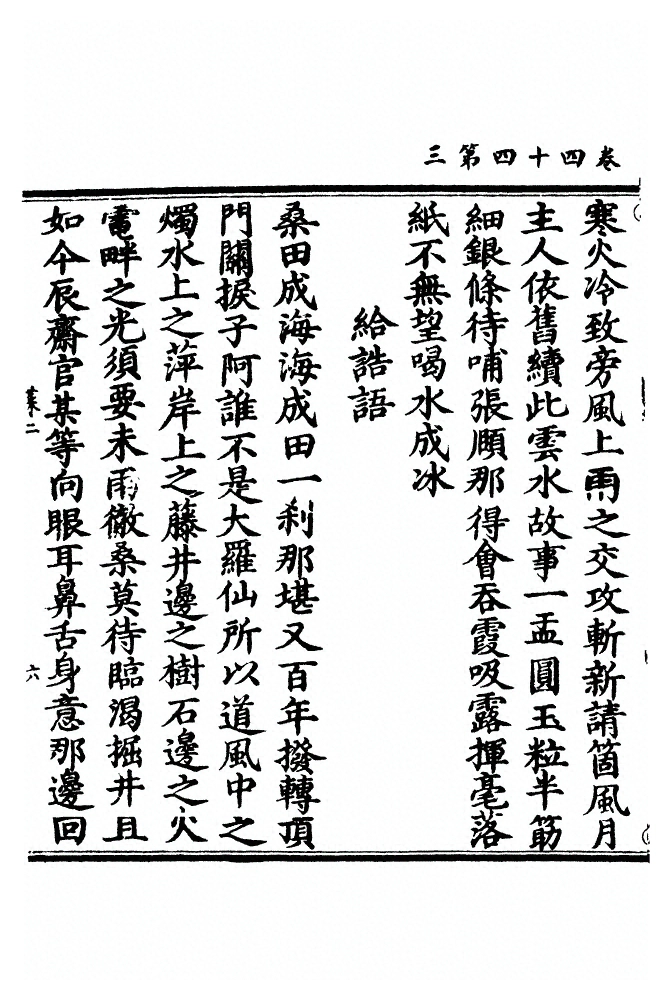 卷四十四第三
寒火冷致旁風上雨之交攻斬新請箇風月
主人依舊續此雲水故事一盂圓玉粒半筯
細銀條待哺張頤那得會吞霞吸露揮毫落
紙不無望喝水成冰
給誥語
桑田成海海成田一刹那堪又百年撥轉頂
門關捩子阿誰不是大羅仙所以道風中之
燭水上之萍岸上之藤井邊之樹石邊之火
電畔之光須要未雨徹桑莫待臨渴掘井且
如今辰齋官某等向眼耳鼻舌身意那邊回
某二
六